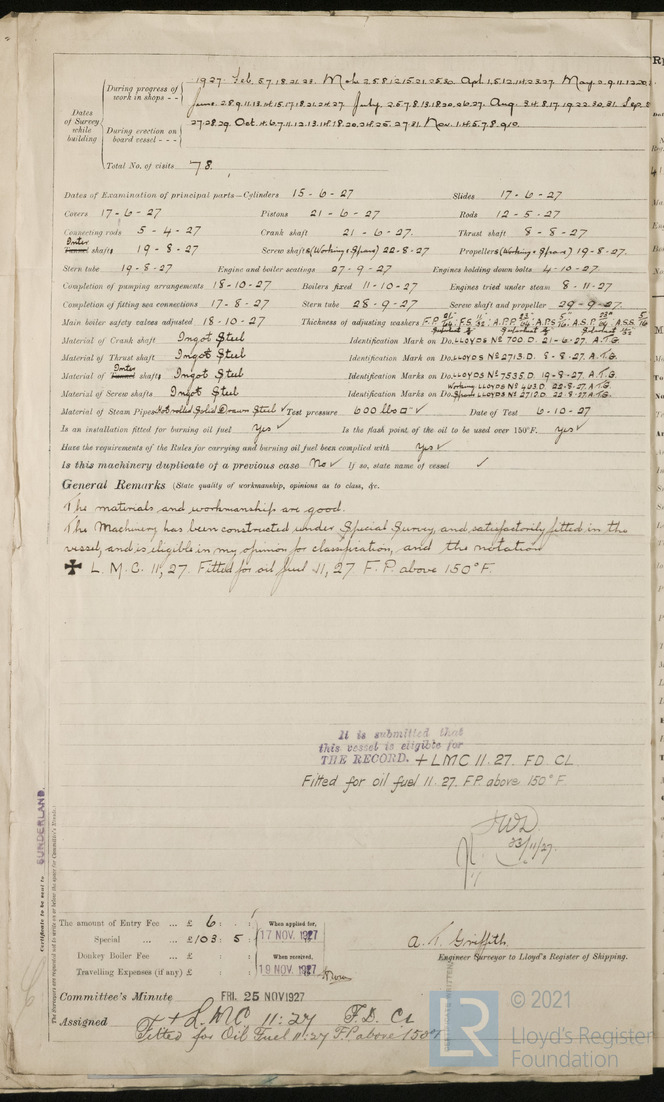 1927. Feb. 5.7.18.21.23. Mch. 2.5.8.12.15.21.25.30. Apl. 1.5.12.14.23.27. May. 2.9.11.12.20.
During progress of work in shops - -
June. 2.8.9.11.13.14.15.17.18.21.24.27. July. 2.5.7.8.13.18.20.26.27. Aug. 3.4.8.17.19.22.30.31. Sep. 8
Dates of Survey while building
During erection on board vessel - - -
27.28.29. Oct. 4.6.7.11.12.13.14.18.20.24.25.27.31. Nov. 1.4.5.7.8.9.10.
Total No. of visits 78.
Dates of Examination of principal parts—Cylinders 15-6-27 Slides 17-6-27
Covers 17-6-27 Pistons 21-6-27 Rods 12-5-27
Connecting rods 5-4-27 Crank shaft 21-6-27. Thrust shaft 8-8-27
Inter
Tunnel shafts 19-8-27 Screw shafts (Working & Spare) 22-8-27 Propellers (Working & Spare) 19-8-27.
Stern tube 19-8-27 Engine and boiler seatings 27-9-27 Engines holding down bolts 4-10-27
Completion of pumping arrangements 18-10-27 Boilers fixed 11-10-27 Engines tried under steam 8-11-27
Completion of fitting sea connections 17-8-27 Stern tube 28-9-27 Screw shaft and propeller 29-9-27.
Main boiler safety valves adjusted 18-10-27 Thickness of adjusting washers
Material of Crank shaft Ingot Steel Identification Mark on Do. LLOYDS Nº 700.D. 21-6-27. A.T.G.
Material of Thrust shaft Ingot Steel Identification Mark on Do. LLOYDS Nº 2713.D. 8-8-27. A.T.G.
Inter
Material of Tunnel shafts Ingot Steel Identification Marks on Do. LLOYDS Nº 7535.D. 19-8-27. A.T.G.
Working LLOYDS Nº 463.D. 22-8-27. A.T.G.
Material of Screw shafts Ingot Steel Identification Marks on Do. Spare LLOYDS Nº 2712.D. 22-8-27. A.T.G.
Material of Steam Pipes Hot rolled Solid Drawn Steel ✓ Test pressure 600 lbs □" ✓ Date of Test 6-10-27
Is an installation fitted for burning oil fuel yes ✓ Is the flash point of the oil to be used over 150°F. yes ✓
Have the requirements of the Rules for carrying and burning oil fuel been complied with yes ✓
Is this machinery duplicate of a previous case No ✓ If so, state name of vessel ✓
General Remarks (State quality of workmanship, opinions as to class, &c.
The materials and workmanship are good.
The Machinery has been constructed under Special Survey, and satisfactorily fitted in the
vessel, and is eligible in my opinion for classification, and the notation
✠ L.M.C. 11,27. Fitted for oil fuel 11,27 F.P. above 150°F.
It is submitted that
this vessel is eligible for
THE RECORD. + LMC 11.27. FD CL
Fitted for oil fuel 11.27. F.P. above 150°F
23/11/27.
Certificate to be sent to SUNDERLAND.
The Surveyors are requested not to write on or below the space for Committee's Minute.
The amount of Entry Fee ... £ 6 : : When applied for,
Special ... ... £ 103 : 5 : 17 NOV. 1927
A. T. Griffith.
Donkey Boiler Fee ... £ : : When received,
Engineer Surveyor to Lloyd's Register of Shipping.
Travelling Expenses (if any) £ : : 19 NOV. 1927
Committee's Minute FRI. 25 NOV 1927
Assigned + L.M.C. 11:27 F.D. CL
Fitted for Oil Fuel 11:27 F.P. above 150°F
LR
© 2021
Lloyd's Register
Foundation